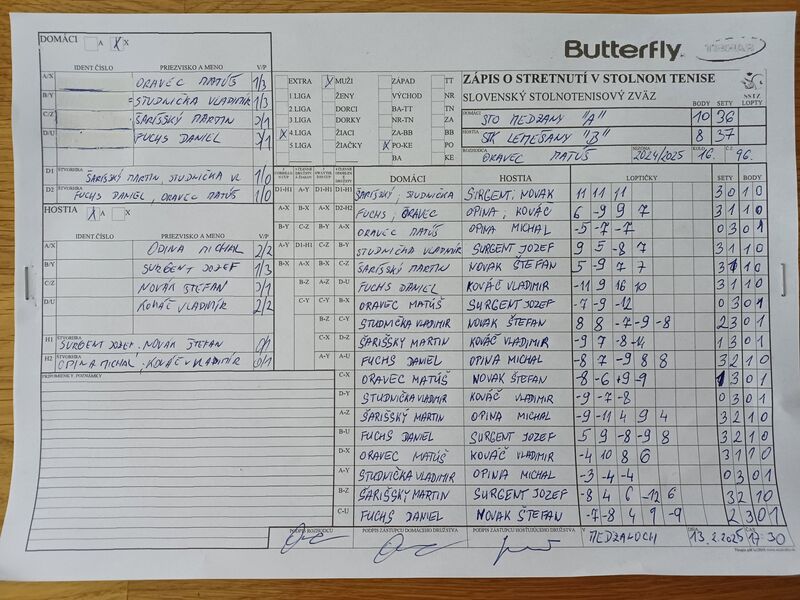 DOMÁCI A X X
Butterfly
IDENT.ČÍSLO PRIEZVISKO A MENO V/P
A/X ORAVEC MATÚŠ 1/3
B/Y STUDNIČKA VLADIMÍR 1/3
C/Z ŠARIŠSKÝ MARTIN 3/1
D/U FUCHS DANIEL 3/1
D1 ŠTVORHRA ŠARIŠSKÝ MARTIN STUDNIČKA VL 1/0
D2 ŠTVORHRA FUCHS DANIEL, ORAVEC MATÚŠ 1/0
HOSTIA X A X
IDENT.ČÍSLO PRIEZVISKO A MENO V/P
A/X OPINA MICHAL 2/2
B/Y SURGENT JOZEF 1/3
C/Z NOVÁK ŠTEFAN 3/1
D/U KOVÁČ VLADIMÍR 2/2
H1 ŠTVORHRA SURGENT JOZEF. NOVÁK ŠTEFAN 0/1
H2 ŠTVORHRA OPINA MICHAL. KOVÁČ VLADIMÍR 0/1
PRIPOMIENKY, POZNÁMKY
EXTRA X MUŽI ZÁPAD TT
1 LIGA ŽENY VÝCHOD NR
2 LIGA DORCI BA-TT TN
3 LIGA DORKY NR-TN ZA
X 4 LIGA ŽIACI ZA-BB BB
5 LIGA ŽIAČKY X PO-KE PO
BA KE
ZÁPIS O STRETNUTÍ V STOLNOM TENISE
SLOVENSKÝ STOLNOTENISOVÝ ZVÄZ
SSTZ
BODY SETY LOPTY
DOMÁCI STO MEDZANY "A" 10 36
HOSTIA STK LEMEŠANY "B" 8 37
ROZHODCA ORAVEC MATÚŠ SEZÓNA 2024/2025 KOLO 16. Č.Z. 96.
DOMÁCI HOSTIA LOPTIČKY SETY BODY
D1-H1 A-Y D1-H1 D2-H2 ŠARIŠSKÝ, STUDNIČKA SIRGENT, NOVAK 11 11 11 3 0 1 0
A-X B-X D2-H2 FUCHS, ORAVEC OPINA, KOVÁČ 6 -9 9 7 3 1 1 0
B-Y C-Z A-X ORAVEC MATÚŠ OPINA MICHAL -5 -7 -7 0 3 0 1
A-Y D1-H1 C-Z B-Y STUDNIČKA VLADIMÍR SURGENT JOZEF 9 5 -8 7 3 1 1 0
B-X A-X C-Z ŠARIŠSKÝ MARTIN NOVAK ŠTEFAN 5 -9 7 7 3 1 1 0
B-Z A-Z D-U FUCHS DANIEL KOVÁČ VLADIMÍR -11 9 16 10 3 1 1 0
C-Y C-Y A-Y ORAVEC MATÚŠ SURGENT JOZEF -7 -9 -12 0 3 0 1
B-Z C-Y B-Z STUDNIČKA VLADIMÍR NOVAK ŠTEFAN 8 8 -7 -9 -8 2 3 0 1
ŠARIŠSKÝ MARTIN KOVÁČ VLADIMÍR -9 7 -8 -14 1 3 0 1
A-Y A-U FUCHS DANIEL OPINA MICHAL -8 7 -9 8 8 3 2 1 0
C-X ORAVEC MATÚŠ NOVAK ŠTEFAN -8 -6 +9 -9 1 3 0 1
D-Y STUDNIČKA VLADIMÍR KOVÁČ VLADIMIR -9 -7 -8 0 3 0 1
A-Z ŠARIŠSKÝ MARTIN OPINA MICHAL -9 -11 4 9 4 3 2 1 0
B-U FUCHS DANIEL SURGENT JOZEF 5 9 -8 -9 8 3 2 1 0
D-X ORAVEC MATÚŠ KOVÁČ VLADIMIR -4 10 8 6 3 1 1 0
A-Y STUDNIČKA VLADIMÍR OPINA MICHAL -3 -4 -4 0 3 0 1
B-Z ŠARIŠSKÝ MARTIN SURGENT JOZEF -8 4 6 -12 6 3 2 1 0
C-U FUCHS DANIEL NOVAK ŠTEFAN -7 -8 4 9 -9 2 3 0 1
PODPIS ROZHODCU PODPIS ZÁSTUPCU DOMÁCEHO DRUŽSTVA PODPIS ZÁSTUPCU HOSŤUJÚCEHO DRUŽSTVA V MEDZANOCH DŇA 13.2.2025 ČAS 17:30